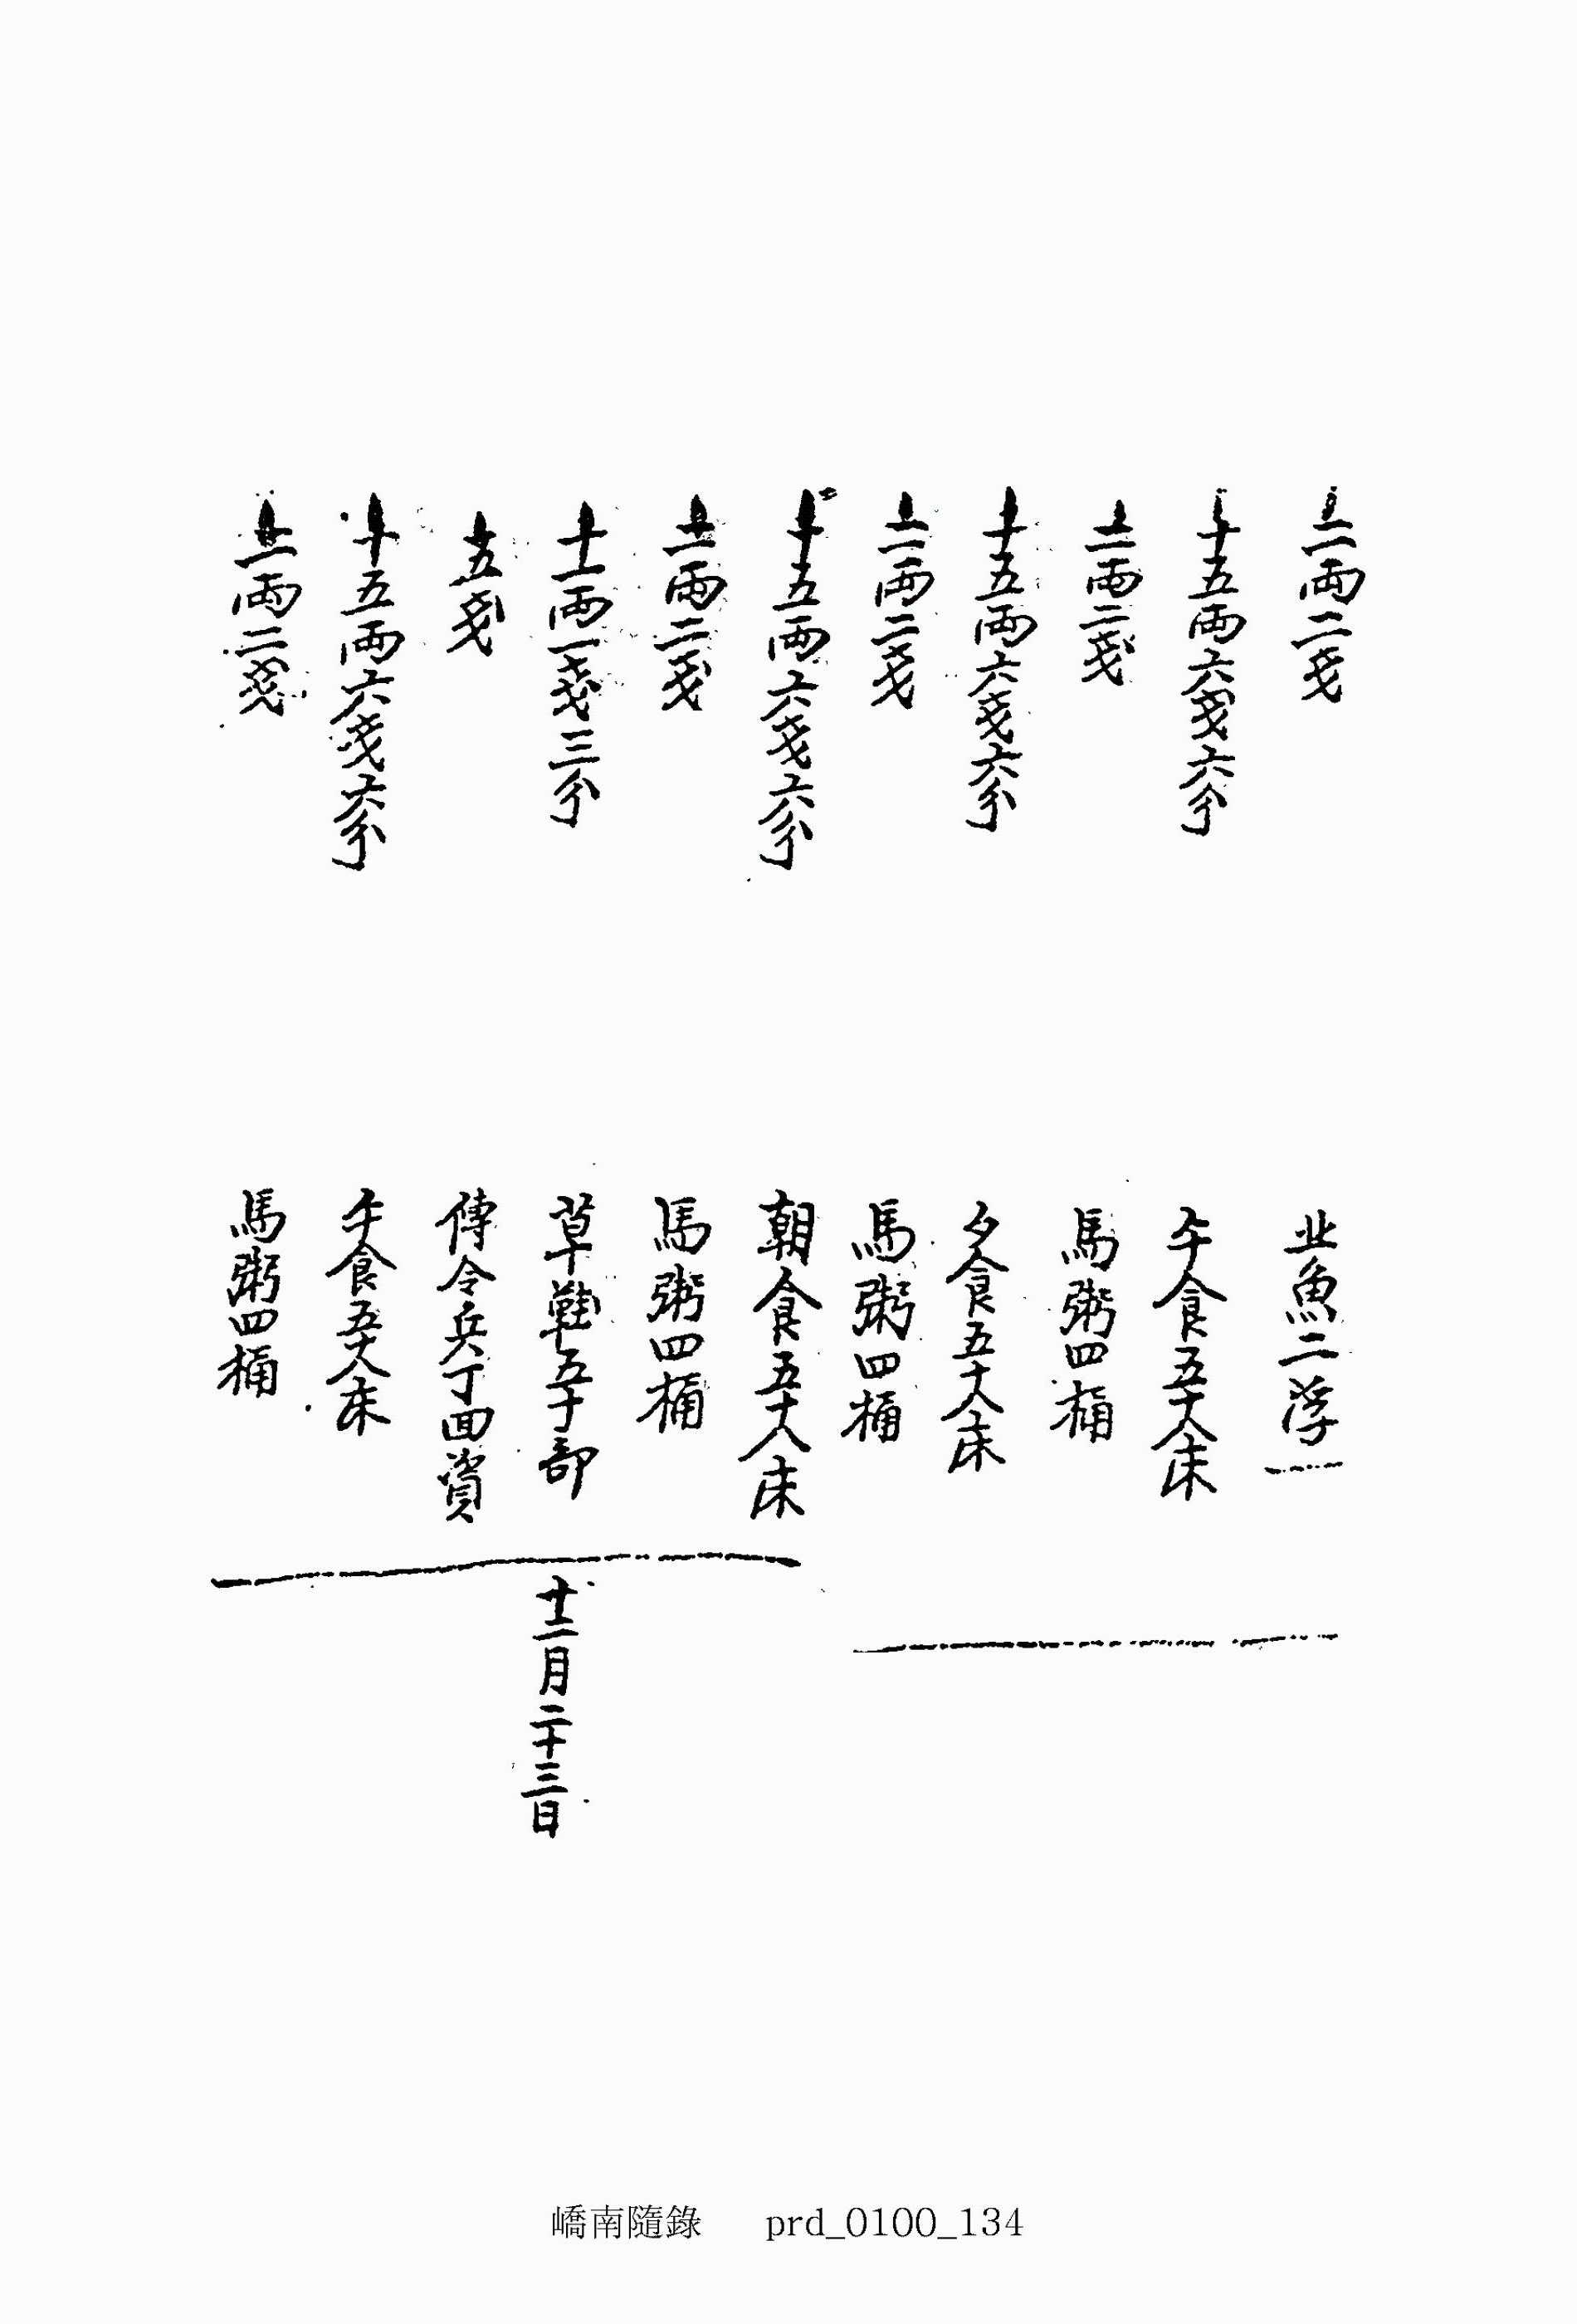 二兩二戔
北魚二浮
十五兩六戔六分
午食五十八床
二兩二戔
馬粥四桶
十五兩六戔六分
夕食五十八床
二兩二戔
馬粥四桶
十五兩六戔六分
朝食五十八床
二兩二戔
馬粥四桶
十一兩一戔三分
草鞋五十部
十二月二十三日
五戔
傳令兵丁回資
十五兩六戔六分
午食五十八床
二兩二戔
馬粥四桶
嶠南隨錄 prd_0100_134